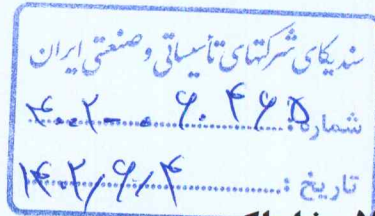 سندیکای شرکتهای تأسیساتی و صنعتی ایران
شماره: ۴۰۲-۰۶۰۴۶۵
تاریخ: ۱۴۰۲/۶/۴